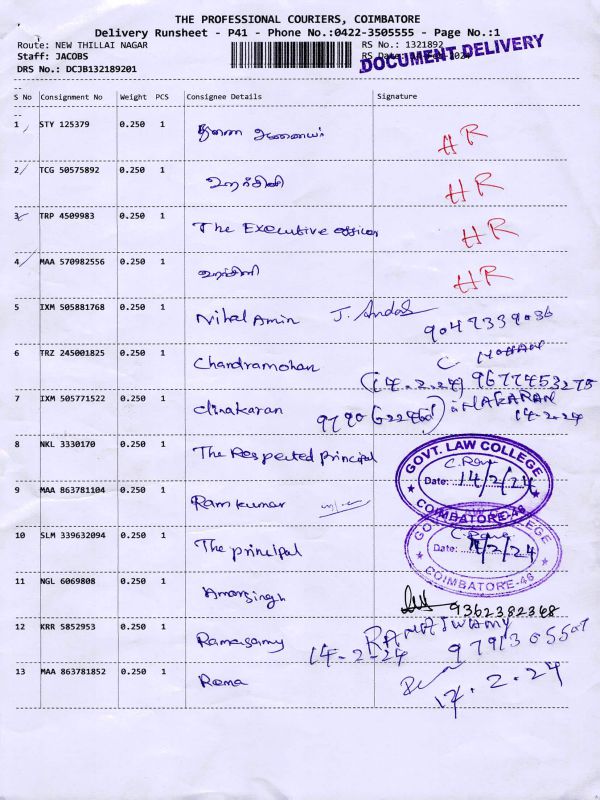 THE PROFESSIONAL COURIERS, COIMBATORE
Delivery Runsheet - P41 - Phone No.:0422-3505555 - Page No.:1
Route: NEW THILLAI NAGAR
RS No.: 1321892
Staff: JACOBS
RS Date:
DOCUMENT DELIVERY
DRS No.: DCJB132189201
S No Consignment No Weight PCS Consignee Details Signature
1 STY 125379 0.250 1 HR
2 TCG 50575892 0.250 1 HR
3 TRP 4509983 0.250 1 The Executive officer HR
4 MAA 570982556 0.250 1 HR
5 IXM 505881768 0.250 1 Nihal Amin
6 TRZ 245001825 0.250 1 Chandramohan C MOHAN
(14.2.24) 9677453275
7 IXM 505771522 0.250 1 dinakaran
14-2-24
8 NKL 3330170 0.250 1 The Respected principal
GOVT. LAW COLLEGE
Date: 14/2/24
COIMBATORE-46
9 MAA 863781104 0.250 1 Ramkumar
10 SLM 339632094 0.250 1 The principal
Date: 14/2/24
COIMBATORE-46
11 NGL 6069808 0.250 1 Amarsingh 9362382368
12 KRR 5852953 0.250 1 Ramasamy RAMASWAMY
14-2-24 9791305507
13 MAA 863781852 0.250 1 Rema
14.2.24